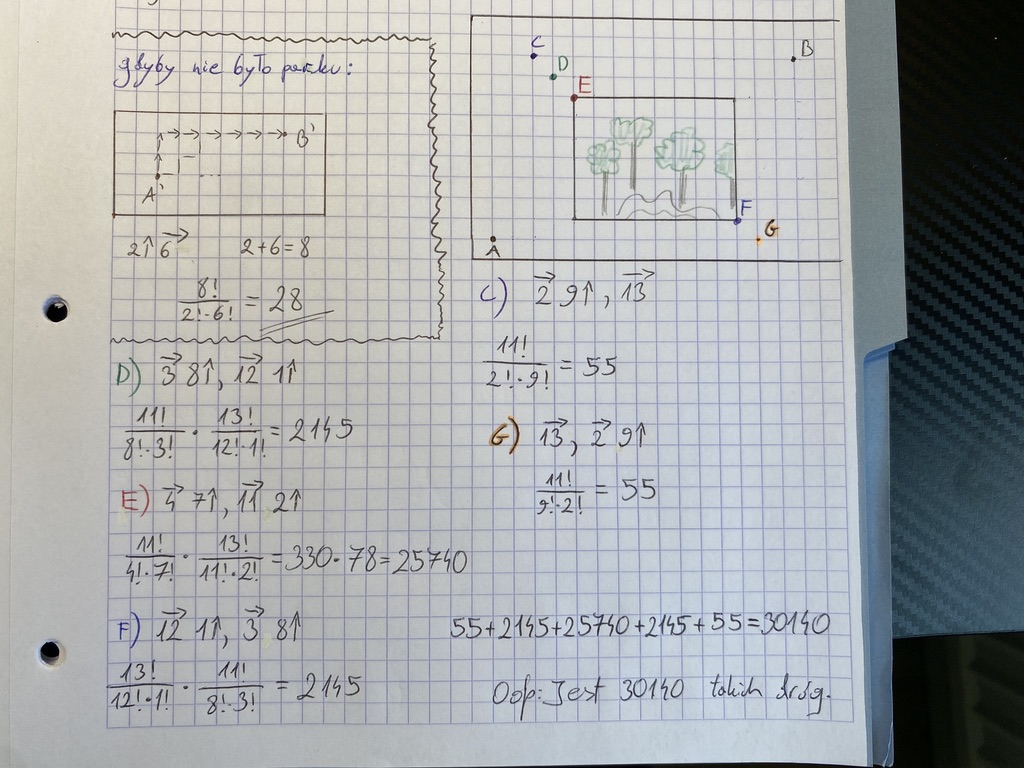 gdyby nie było parku:
B'
A'
2↑ 6→ 2+6=8
8!/(2!·6!) = 28
C
D
E
B
F
G
A
C) 2→ 9↑, 13→
11!/(2!·9!) = 55
D) 3→ 8↑, 12→ 1↑
11!/(8!·3!) · 13!/(12!·1!) = 2145
G) 13→, 2→ 9↑
11!/(9!·2!) = 55
E) 4→ 7↑, 11→ 2↑
11!/(4!·7!) · 13!/(11!·2!) = 330·78 = 25740
F) 12→ 1↑, 3→ 8↑
13!/(12!·1!) · 11!/(8!·3!) = 2145
55+2145+25740+2145+55=30140
Odp: Jest 30140 takich dróg.